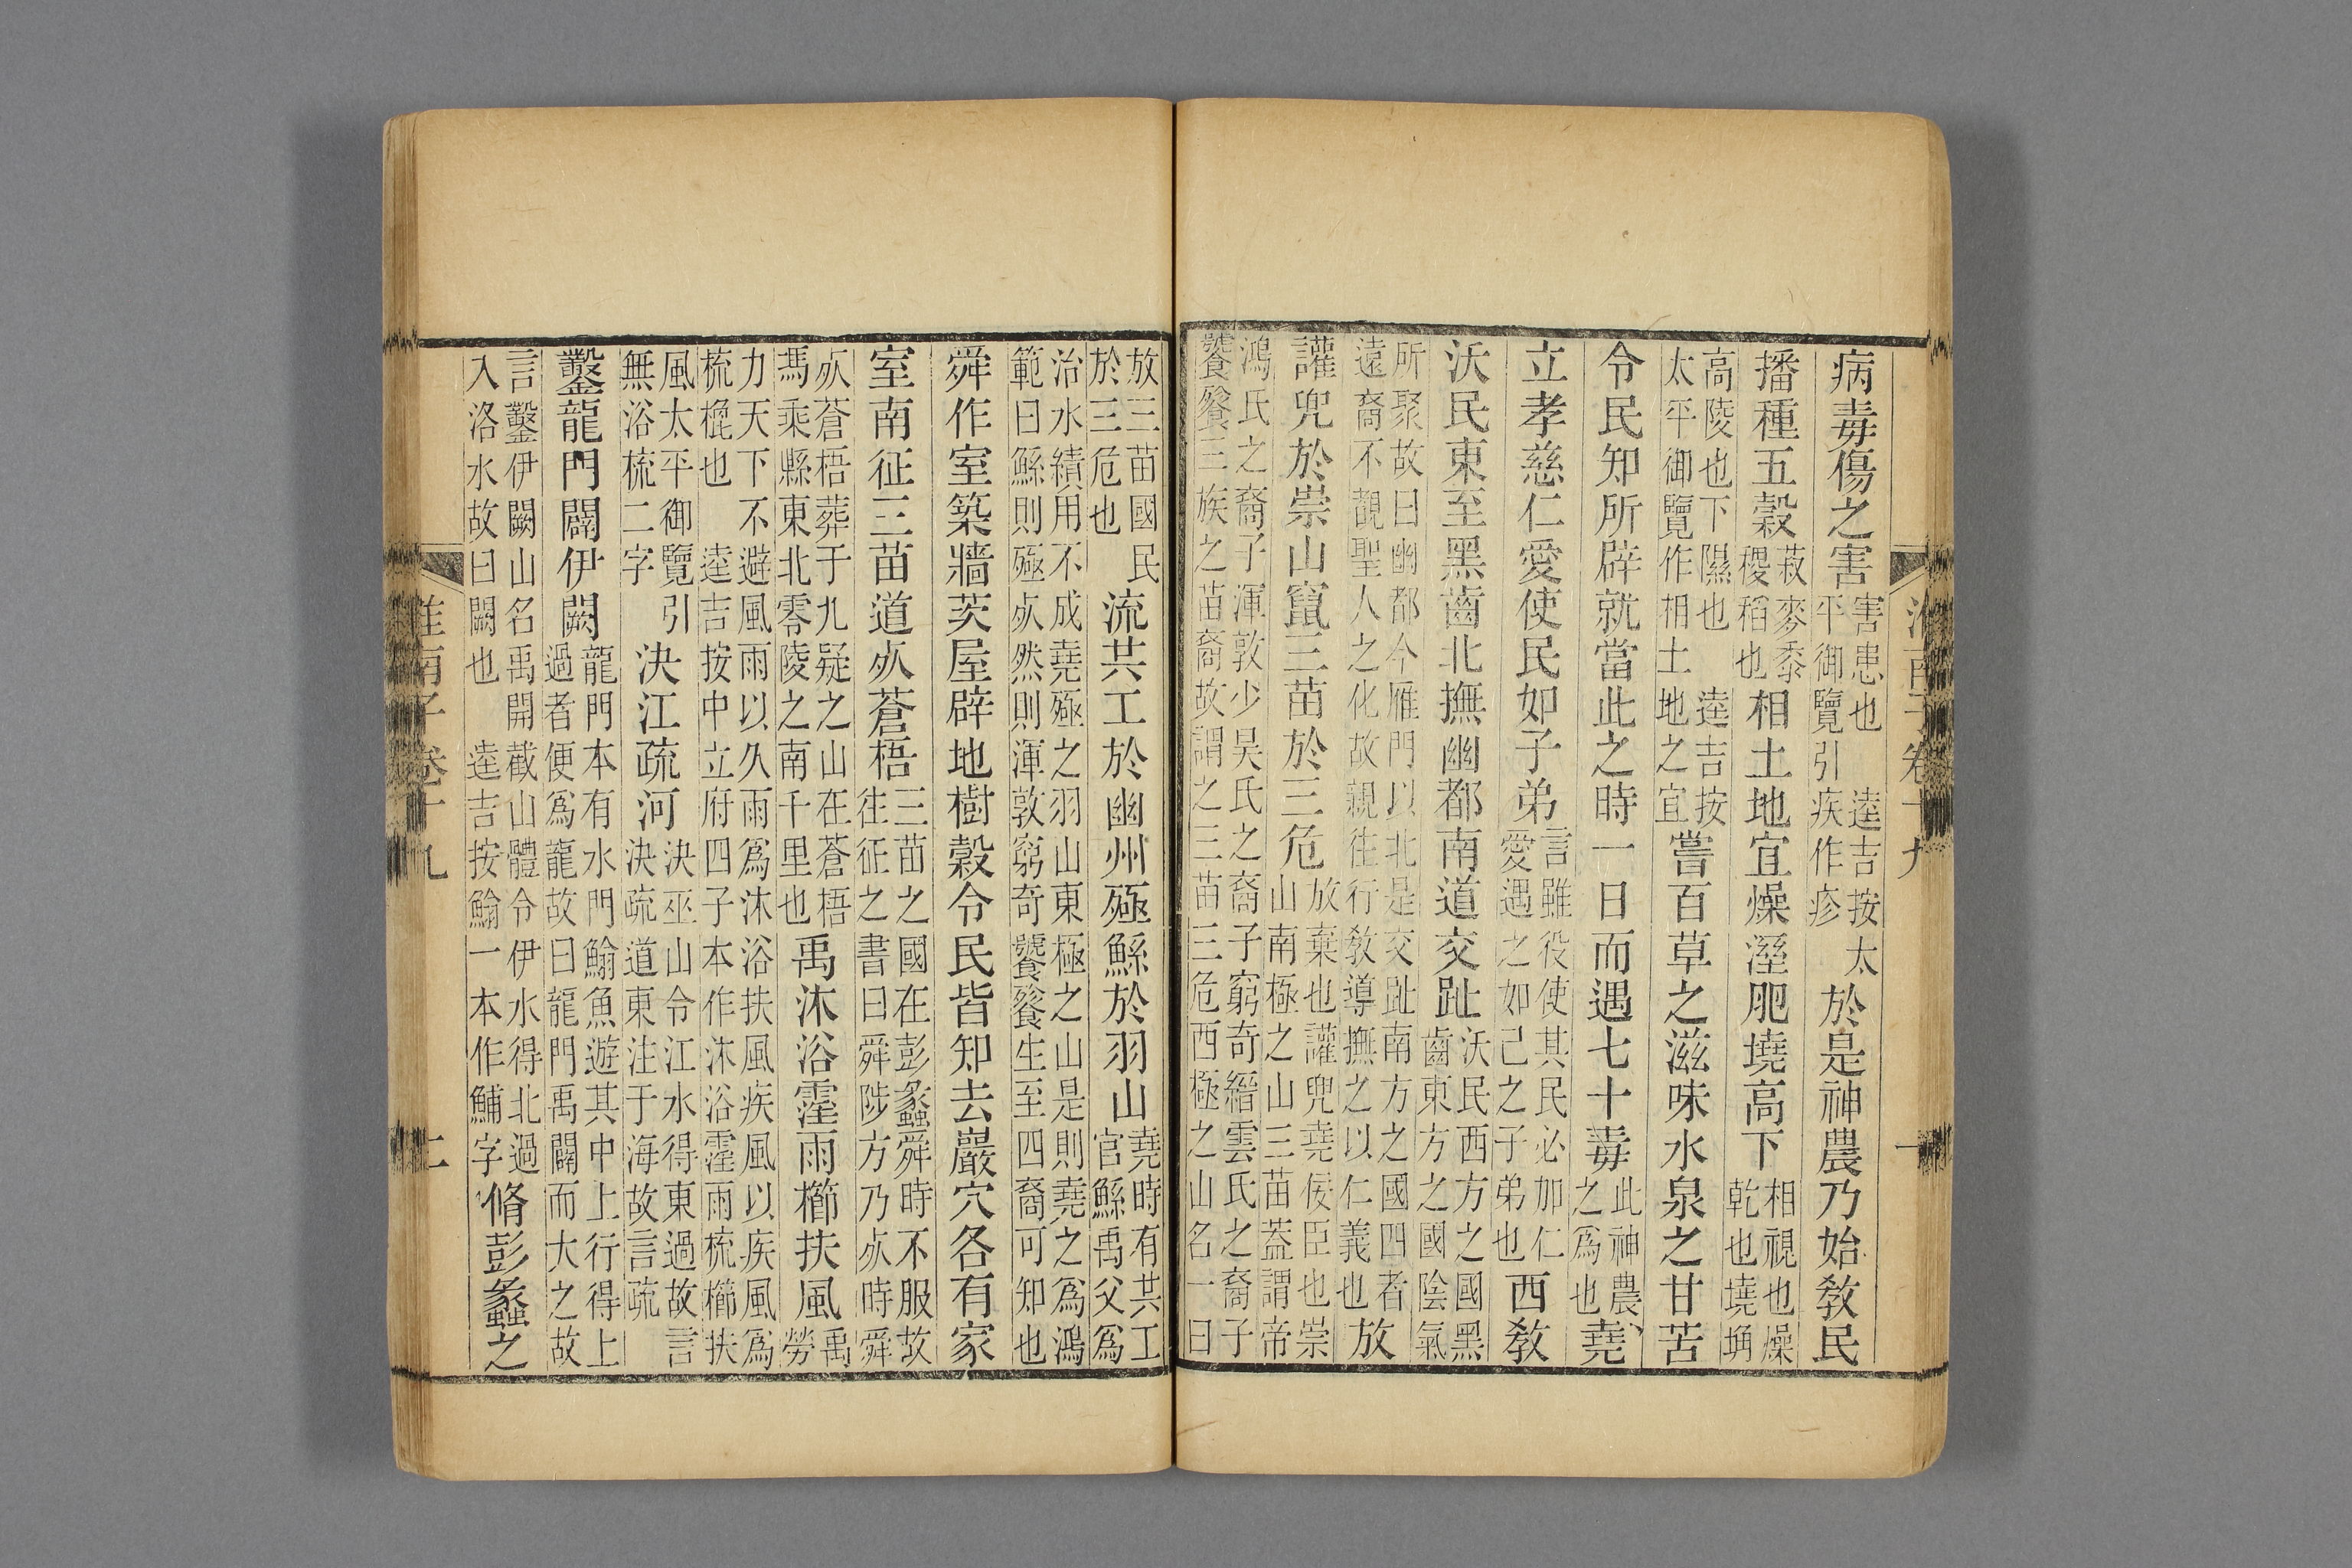 病毒傷之害害患也逵吉按太平御覽引疾作疹於是神農乃始敎民
播種五穀菽麥黍稷稻也相土地宜燥溼肥墝高下相視也燥乾也墝埆
高陵也下隰也逵吉按太平御覽作相土地之宜嘗百草之滋味水泉之甘苦
令民知所辟就當此之時一日而遇七十毒此神農之爲也堯
立孝慈仁愛使民如子弟言雖役使其民必加仁愛遇之如己之子弟也西敎
沃民東至黑齒北撫幽都南道交趾沃民西方之國黑齒東方之國陰氣
所聚故曰幽都今雁門以北是交趾南方之國四者遠裔不觀聖人之化故親往行敎導撫之以仁義也放
讙兜於崇山竄三苗於三危放棄也讙兜堯佞臣也崇山南極之山三苗蓋謂帝
鴻氏之裔子渾敦少昊氏之裔子窮奇縉雲氏之裔子饕餮三族之苗裔故謂之三苗三危西極之山名一曰
放三苗國民於三危也流共工於幽州殛鯀於羽山堯時有共工官鯀禹父爲
治水績用不成堯殛之羽山東極之山是則堯之爲鴻範曰鯀則殛死然則渾敦窮奇饕餮生至四裔可知也
舜作室築牆茨屋辟地樹穀令民皆知去巖穴各有家
室南征三苗道死蒼梧三苗之國在彭蠡舜時不服故往征之書曰舜陟方乃死時舜
死蒼梧葬于九疑之山在蒼梧馮乘縣東北零陵之南千里也禹沐浴霪雨櫛扶風禹勞
力天下不避風雨以久雨爲沐浴扶風疾風以疾風爲梳櫛也逵吉按中立府四子本作沐浴霪雨梳櫛扶
風太平御覽引無浴梳二字決江疏河決巫山令江水得東過故言決疏道東注于海故言疏
鑿龍門闢伊闕龍門本有水門鮪魚遊其中上行得上過者便爲龍故曰龍門禹闢而大之故
言鑿伊闕山名禹開截山體令伊水得北過入洛水故曰闕也逵吉按鮪一本作鯆字脩彭蠡之
淮南子卷十九